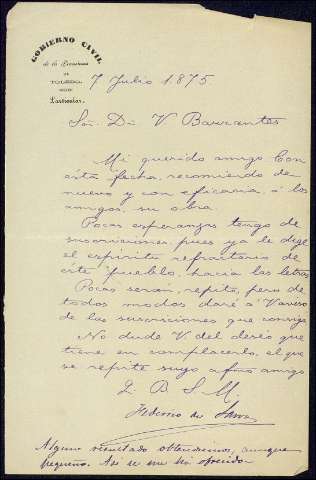 GOBIERNO CIVIL
de la Provincia
DE
TOLEDO
Particular.
7 Julio 1875
Sr. Dn. V. Barrantes
Mi querido amigo: Con
esta fecha, recomiendo de
nuevo y con eficacia, á los
amigos, su obra.
Pocas esperanzas tengo de
suscriciones, pues ya le dige
el espíritu refractario de
éste pueblo, hacia las letras
Pocas serán, repito, pero de
todos modos daré á V. aviso
de las suscriciones que consiga
No dude V. del deseo que
tiene en complacerlo, el que
se repite suyo afmo amigo
Q. B. S. M.
Federico de
Algun resultado obtendremos, aunque
pequeño. Asi se me ha ofrecido.